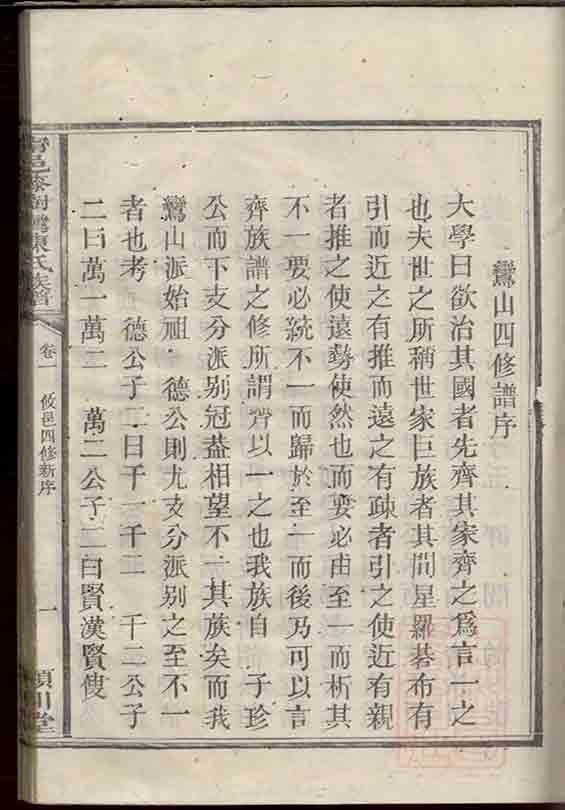 鸞山四修譜序
大學曰欲治其國者先齊其家齊之為言一之
也夫世之所稱世家巨族者其間星羅碁布有
引而近之有推而遠之有疎者引之使近有親
者推之使遠勢使然也而要必由至一而析其
不一要必統不一而歸於至一而後乃可以言
齊族譜之修所謂齊以一之也我族自 子珍
公而下支分派别冠葢相望不一其族矣而我
鸞山派始祖 德公則尤支分派别之至不一
者也考 德公子二曰千一千二 千二公子
二曰萬一萬二 萬二公子二曰賢漢賢傁
陳氏族譜
卷一 攸邑四修新序 一
潁川堂